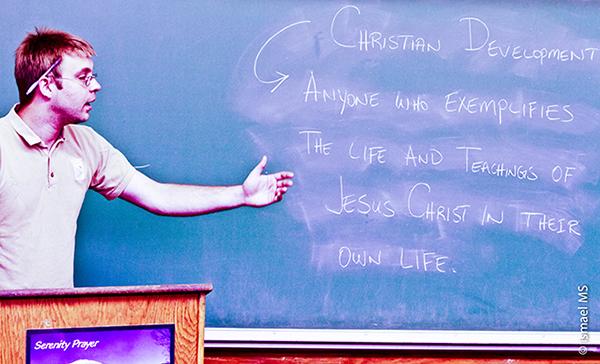 Christian Development
Anyone who exemplifies
The life and Teachings of
Jesus Christ in their
own life.
Serenity Prayer
© Ismael MS